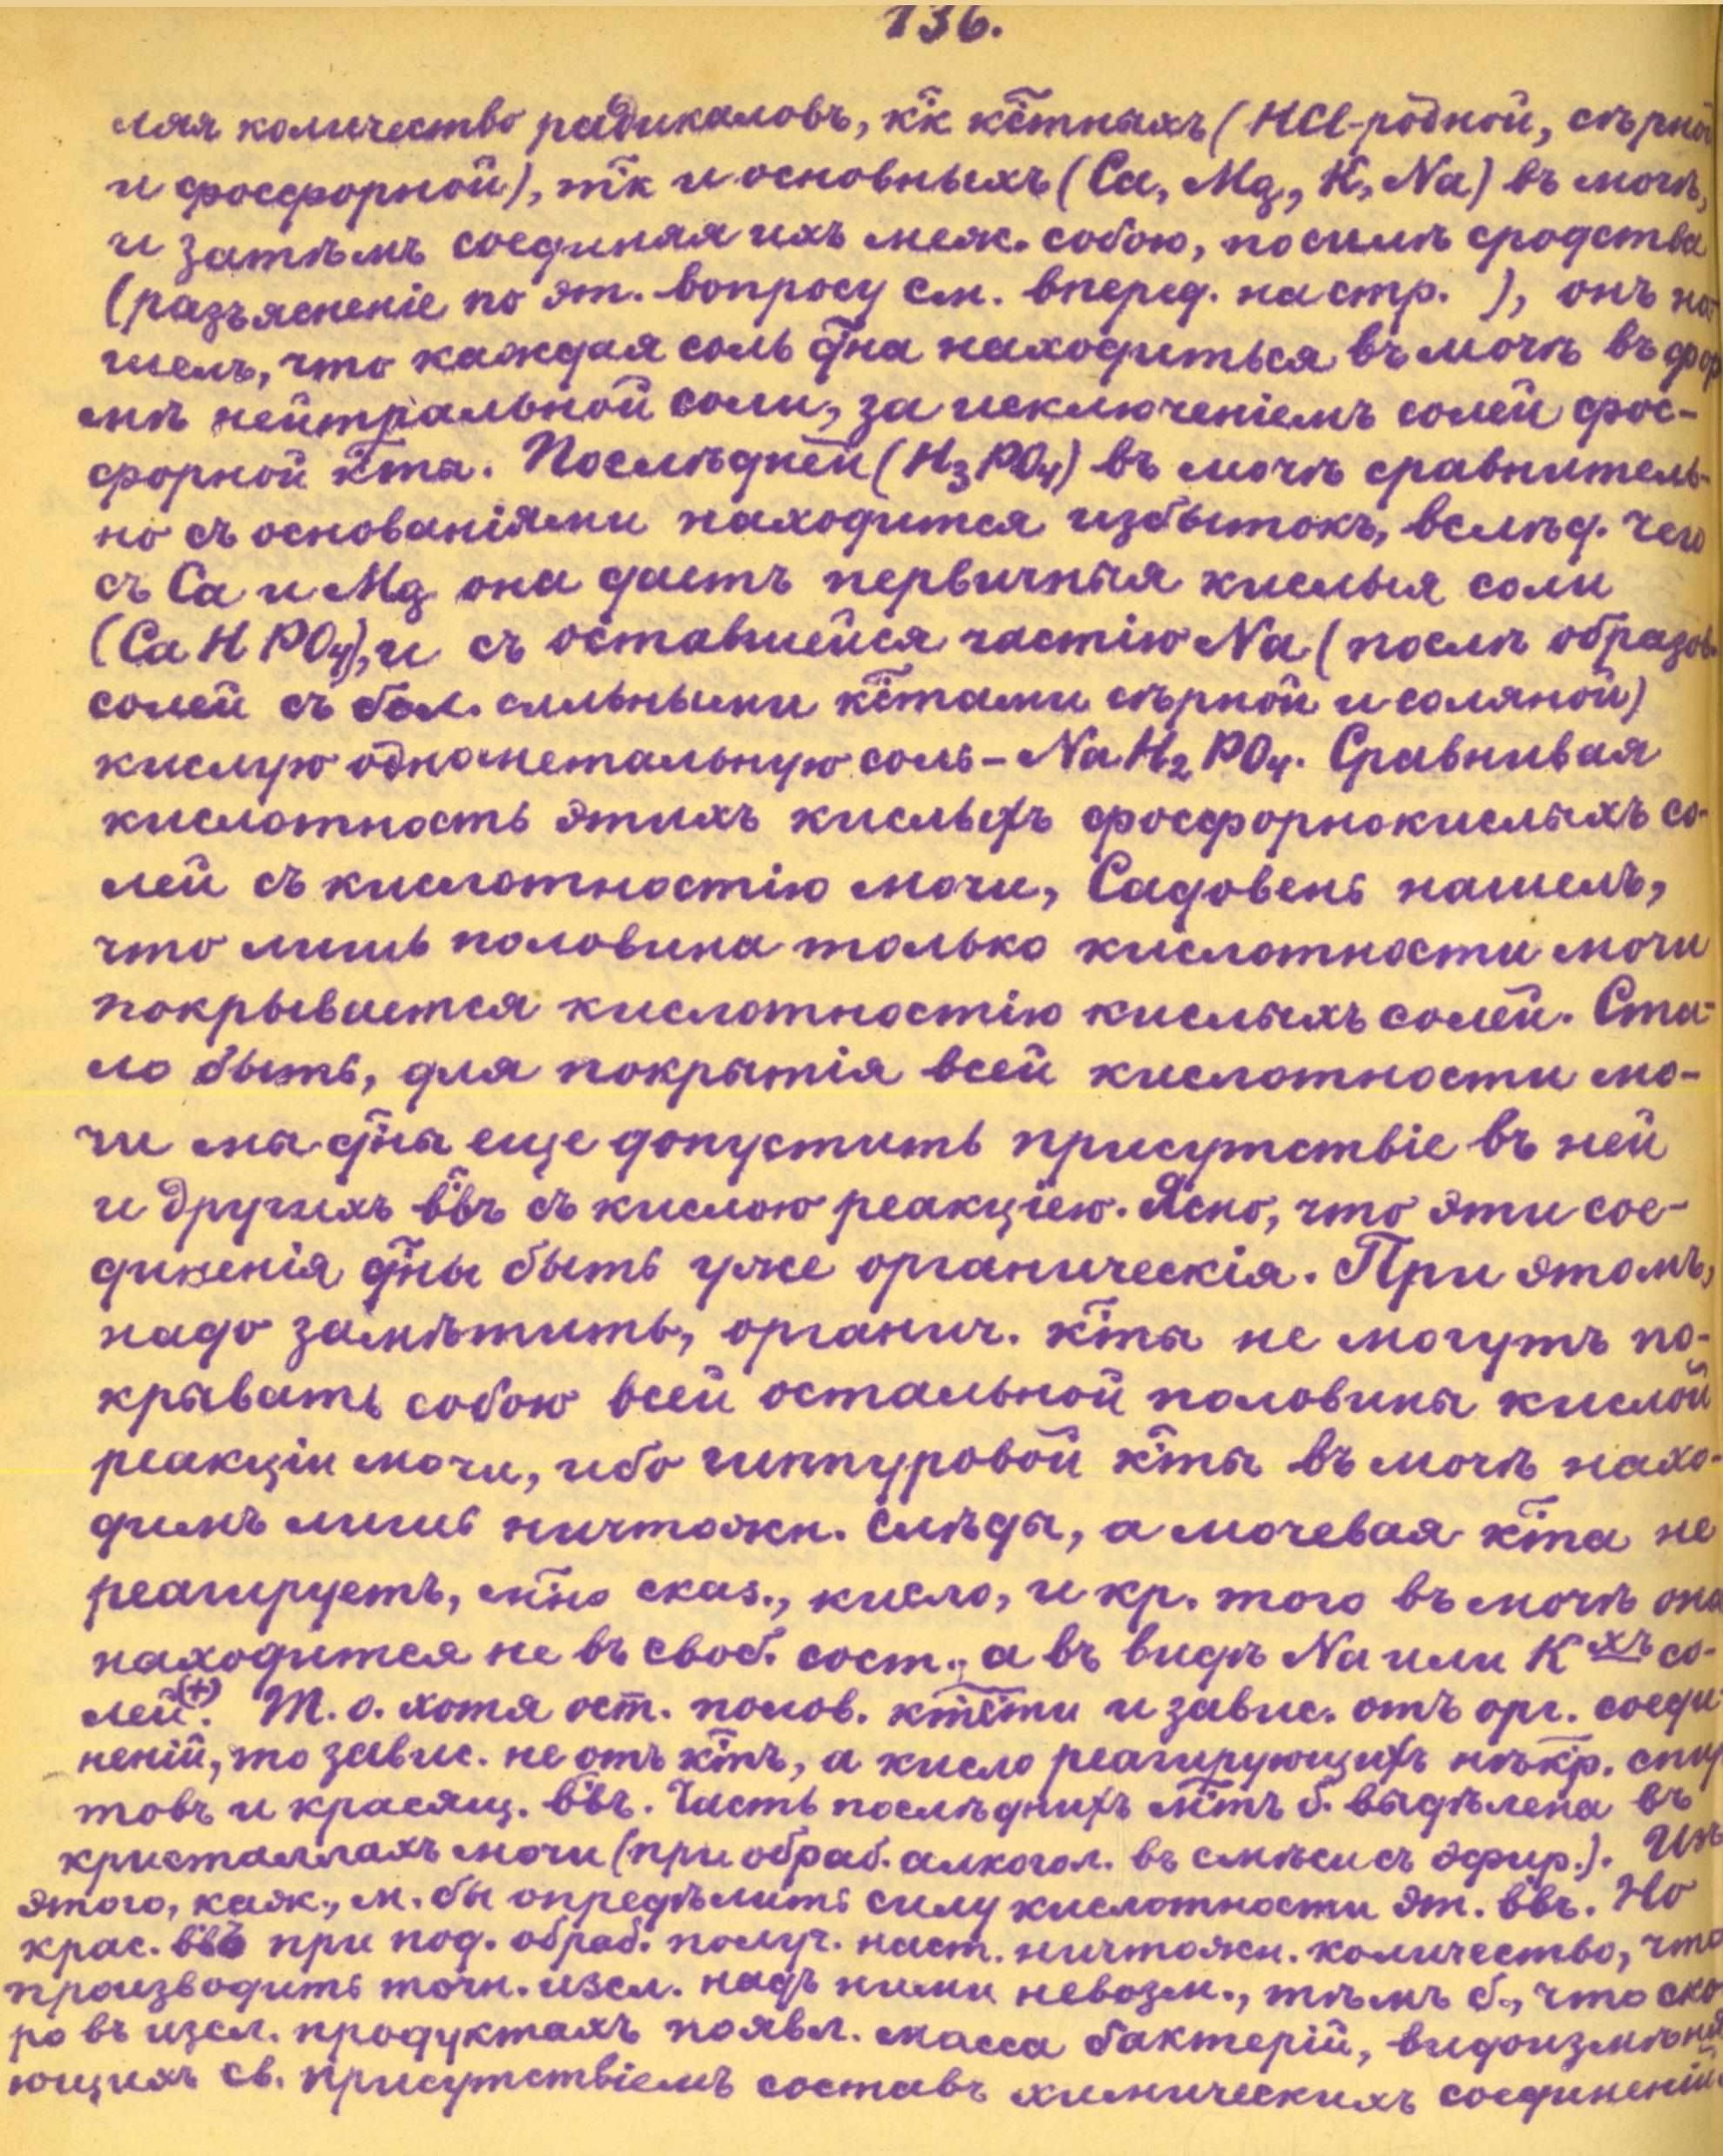 136.
ляя количество радикаловъ, к̃к к̃стныхъ (HCl-родной, сѣрной
и фосфорной), т̃к и основныхъ (Ca, Mg, K, Na) въ мочѣ,
и затѣмъ соединяя ихъ меж. собою, по силѣ сродства
(разъясненіе по эт. вопросу см. вперед. на стр. ), онъ на-
шелъ, что каждая соль д̃на находиться въ мочѣ въ фор
мѣ нейтральной соли, за исключеніемъ солей фос-
форной к̃ты. Послѣдней (H₃PO₄) въ мочѣ сравнитель-
но съ основаніями находится избытокъ, вслѣд. чего
съ Ca и Mg она даетъ первичныя кислыя соли
(CaHPO₄), и съ оставшейся частію Na (послѣ образов.
солей съ бол. сильными к̃стами сѣрной и соляной)
кислую однометальную соль – NaH₂PO₄. Сравнивая
кислотность этихъ кислыхъ фосфорнокислыхъ со-
лей съ кислотностію мочи, Садовень нашелъ,
что лишь половина только кислотности мочи
покрывается кислотностію кислыхъ солей. Ста-
ло быть, для покрытія всей кислотности мо-
чи мы д̃ны еще допустить присутствіе въ ней
и другихъ в̃въ съ кислою реакціею. Ясно, что эти сое-
диненія д̃ны быть уже органическія. При этомъ,
надо замѣтить, органич. к̃ты не могутъ по-
крывать собою всей остальной половины кислой
реакціи мочи, ибо гиппуровой к̃ты въ мочѣ нахо-
димъ лишь ничтожн. слѣды, а мочевая к̃та не
реагируетъ, м̃но сказ., кисло, и кр. того въ мочѣ она
находится не въ своб. сост., а въ видѣ Na или K хъ со-
лей(+). Т. о. хотя ост. полов. к̃тсти и завис. отъ орг. соеди
неній, то завис. не отъ к̃тъ, а кисло реагирующихъ нѣк̃р. спир
товъ и красящ. в̃въ. Часть послѣднихъ м̃тъ б. выдѣлена въ
кристаллахъ мочи (при обраб. алкогол. въ смѣси съ эфир.). Изъ
этого, каж., м. бы опредѣлить силу кислотности эт. в̃въ. Но
крас. в̃въ при под. обраб. получ. наст. ничтожн. количество, что
производить точн. изсл. надъ ними невозм., тѣмъ б., что ско
ро въ изсл. продуктахъ появл. масса бактерій, видоизмѣня
ющихъ св. присутствіемъ составъ химическихъ соединеній.